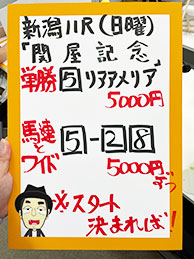 新潟11R(日曜)
「関屋記念」
単勝 5 リアアメリア
5000円
馬連とワイド 5-2 8
5000円ずつ
※スタート
決まれば!